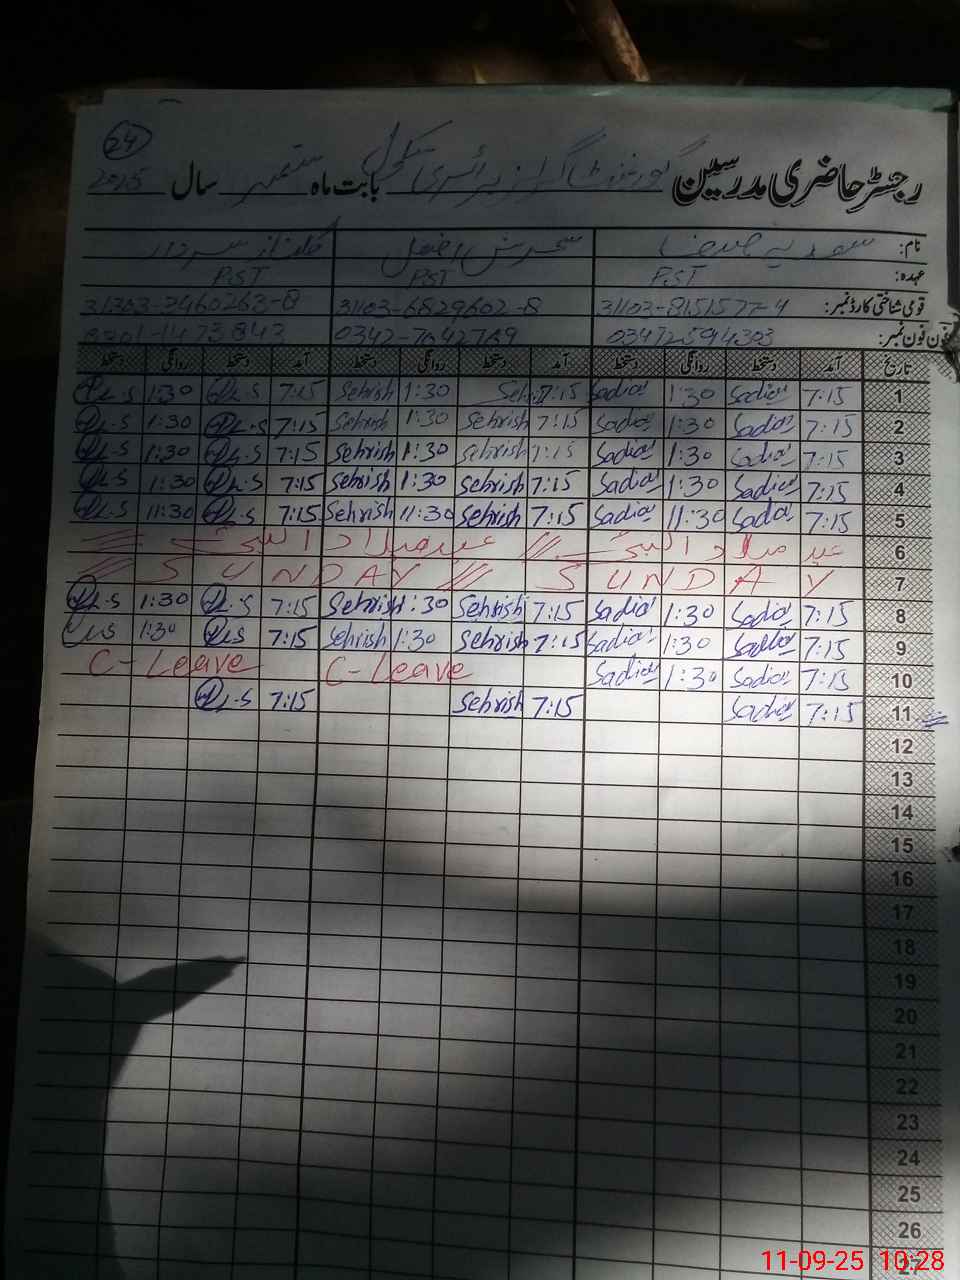 24
رجسٹر حاضری مدرسین گورنمنٹ گرلز پرائمری سکول بابت ماہ ستمبر سال 2025
نام: سعدیہ سحرش افضل گلناز سردار
عہدہ: PST PST PST
قومی شناختی کارڈ نمبر: 31103-8151577-4 31103-6829602-8 31303-3460263-8
فون نمبر: 03472594303
تاریخ آمد دستخط روانگی دستخط آمد دستخط روانگی دستخط آمد دستخط روانگی دستخط
1 7:15 Sadia 1:30 Sadia 7:15 Seh 1:30 Sehrish 7:15 1:30
2 7:15 Sadia 1:30 Sadia 7:15 Sehrish 1:30 Sehrish 7:15 1:30
3 7:15 Sadia 1:30 Sadia 7:15 Sehrish 1:30 Sehrish 7:15 1:30
4 7:15 Sadia 1:30 Sadia 7:15 Sehrish 1:30 Sehrish 7:15 1:30
5 7:15 Sadia 11:30 Sadia 7:15 Sehrish 11:30 Sehrish 7:15 11:30
6 عید میلاد النبی عید میلاد النبی
7 SUNDAY SUNDAY
8 7:15 Sadia 1:30 Sadia 7:15 Sehrish 1:30 Sehrish 7:15 1:30
9 7:15 Sadia 1:30 Sadia 7:15 Sehrish 1:30 Sehrish 7:15 1:30
10 7:15 Sadia 1:30 Sadia C-Leave C-Leave
11 7:15 Sadia 7:15 Sehrish 7:15
12
13
14
15
16
17
18
19
20
21
22
23
24
25
26
27
11-09-25 10:28